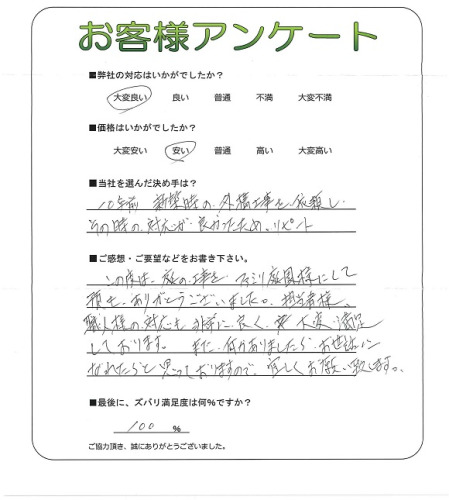 お客様アンケート
■弊社の対応はいかがでしたか？
大変良い 良い 普通 不満 大変不満
■価格はいかがでしたか？
大変安い 安い 普通 高い 大変高い
■当社を選んだ決め手は？
10年前 新築時の、外構工事を依頼し、
その時の対応が良かったため、リピート
■ご感想・ご要望などをお書き下さい。
この度は、庭の工事を ファミリー庭園様にして
頂き、ありがとうございました。担当者様、
職人様の対応も非常に良く、大変満足
しております。 また、何かありましたら、お世話に
なれたらと思っておりますので、宜しくお願い致します。
■最後に、ズバリ満足度は何%ですか？
100 %
ご協力頂き、誠にありがとうございました。